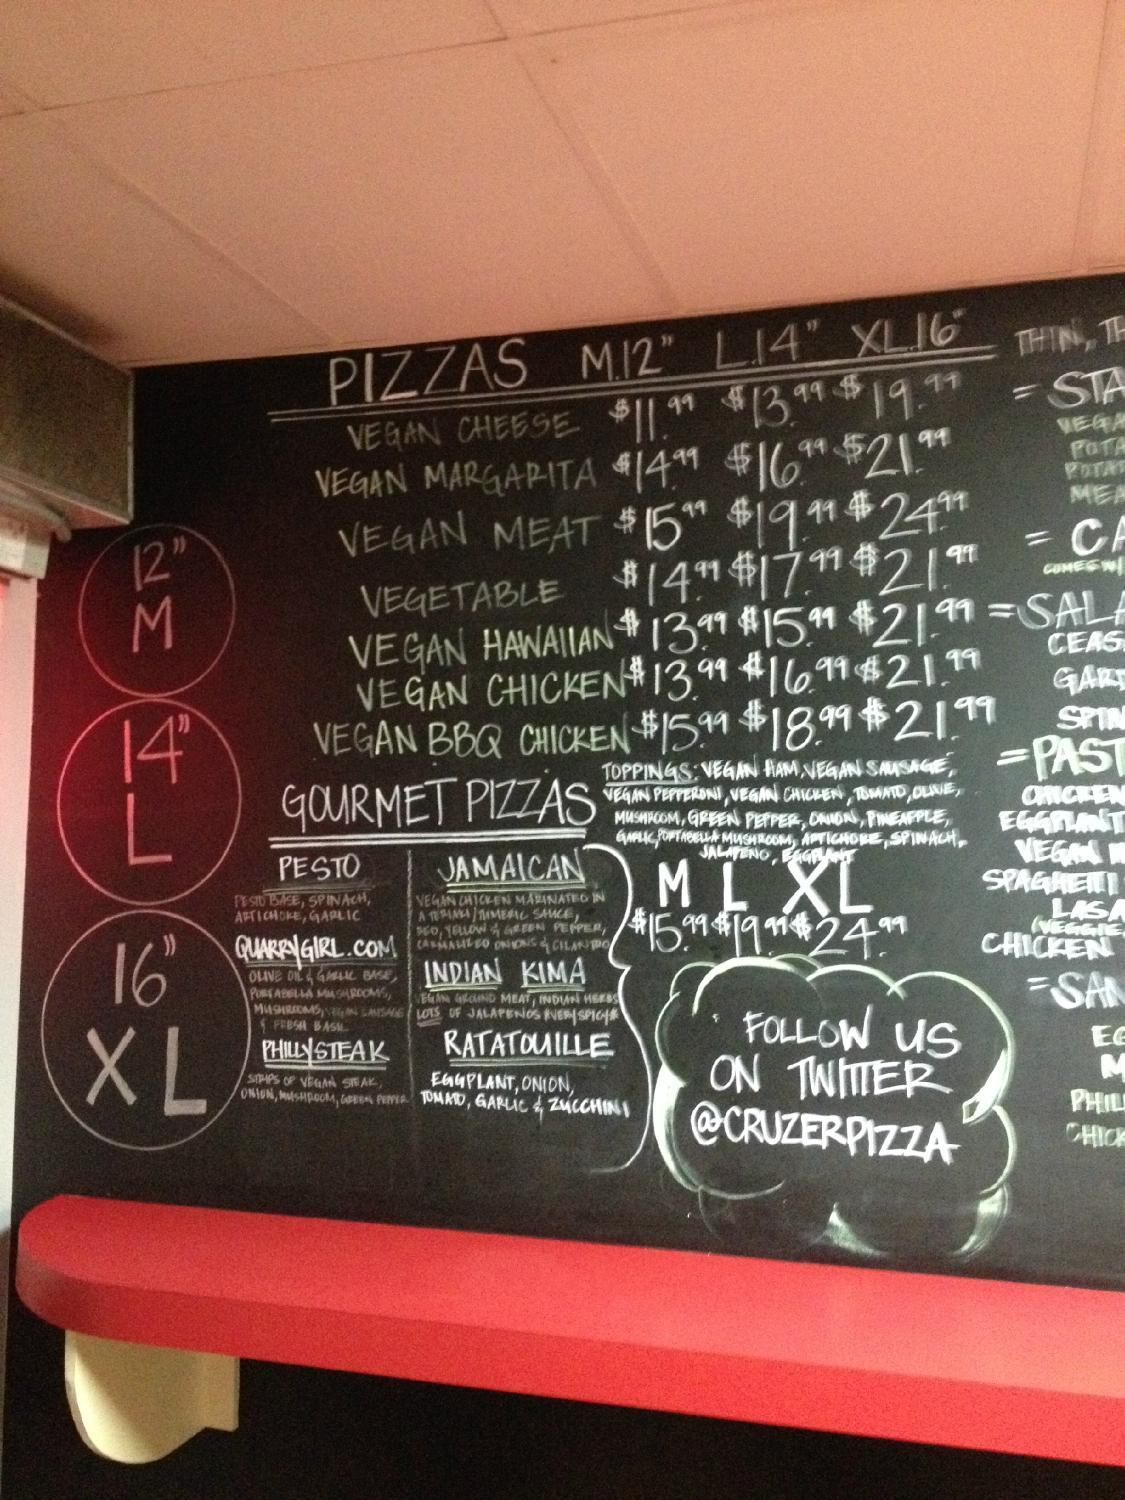 PIZZAS M.12" L.14" XL.16"
VEGAN CHEESE $11.99 $13.99 $19.99
VEGAN MARGARITA $14.99 $16.99 $21.99
VEGAN MEAT $15.99 $19.99 $24.99
VEGETABLE $14.99 $17.99 $21.99
VEGAN HAWAIIAN $13.99 $15.99 $21.99
VEGAN CHICKEN $13.99 $16.99 $21.99
VEGAN BBQ CHICKEN $15.99 $18.99 $21.99
12"
M
14"
L
16"
XL
TOPPINGS: VEGAN HAM, VEGAN SAUSAGE,
VEGAN PEPPERONI, VEGAN CHICKEN, TOMATO, OLIVE,
MUSHROOM, GREEN PEPPER, ONION, PINEAPPLE,
GARLIC, PORTABELLA MUSHROOM, ARTICHOKE, SPINACH,
JALAPENO, EGGPLANT
GOURMET PIZZAS
PESTO
PESTO BASE, SPINACH,
ARTICHOKE, GARLIC
QUARRYGIRL.COM
OLIVE OIL & GARLIC BASE,
PORTABELLA MUSHROOMS,
MUSHROOMS, VEGAN SAUSAGE
& FRESH BASIL
PHILLYSTEAK
STRIPS OF VEGAN STEAK,
ONION, MUSHROOM, GREEN PEPPER
JAMAICAN
VEGAN CHICKEN MARINATED IN
A TERIAKI/TUMERIC SAUCE,
RED, YELLOW & GREEN PEPPER,
CARMALIZED ONIONS & CILANTRO
INDIAN KIMA
VEGAN GROUND MEAT, INDIAN HERBS
LOTS OF JALAPENOS *VERY SPICY*
RATATOUILLE
EGGPLANT, ONION,
TOMATO, GARLIC & ZUCCHINI
M L XL
$15.99 $19.99 $24.99
FOLLOW US
ON TWITTER
@CRUZERPIZZA
THIN, TH
= STA
VEGA
POTA
POTAT
MEA
= CA
COMES W/
= SALA
CEAS
GARD
SPIN
= PAST
CHICKEN
EGGPLANT
VEGAN M
SPAGHETTI
LASA
(VEGGIE,
CHICKEN
= SAN
EG
M
PHIL
CHICK